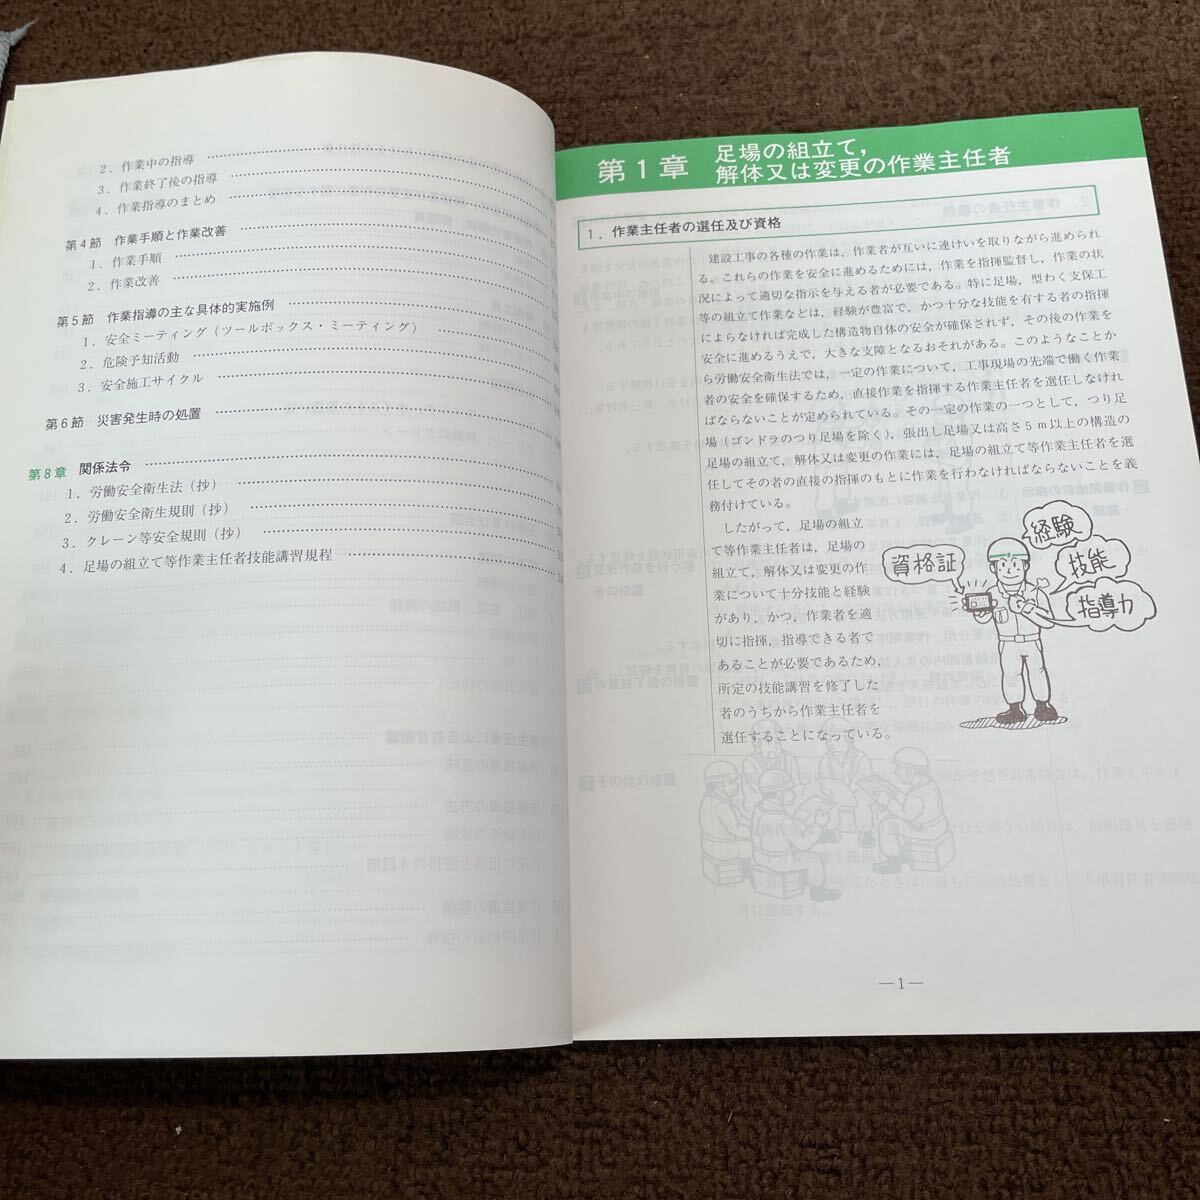 2．作業中の指導
3．作業終了後の指導
4．作業指導のまとめ
第4節　作業手順と作業改善
1．作業手順
2．作業改善
第5節　作業指導の主な具体的実施例
1．安全ミーティング（ツールボックス・ミーティング）
2．危険予知活動
3．安全施工サイクル
第6節　災害発生時の処置
第8章　関係法令
1．労働安全衛生法（抄）
2．労働安全衛生規則（抄）
3．クレーン等安全規則（抄）
4．足場の組立て等作業主任者技能講習規程
第1章　足場の組立て，
解体又は変更の作業主任者
1．作業主任者の選任及び資格
建設工事の各種の作業は，作業者が互いに連けいを取りながら進められ
る。これらの作業を安全に進めるためには，作業を指揮監督し，作業の状
況によって適切な指示を与える者が必要である。特に足場，型わく支保工
等の組立て作業などは，経験が豊富で，かつ十分な技能を有する者の指揮
によらなければ完成した構造物自体の安全が確保されず，その後の作業を
安全に進めるうえで，大きな支障となるおそれがある。このようなことか
ら労働安全衛生法では，一定の作業について，工事現場の先端で働く作業
者の安全を確保するため，直接作業を指揮する作業主任者を選任しなけれ
ばならないことが定められている。その一定の作業の一つとして，つり足
場（ゴンドラのつり足場を除く），張出し足場又は高さ5m以上の構造の
足場の組立て，解体又は変更の作業には，足場の組立て等作業主任者を選
任してその者の直接の指揮のもとに作業を行わなければならないことを義
務付けている。
したがって，足場の組立
て等作業主任者は，足場の
組立て，解体又は変更の作
業について十分技能と経験
があり，かつ，作業者を適
切に指揮，指導できる者で
あることが必要であるため，
所定の技能講習を修了した
者のうちから作業主任者を
選任することになっている。
資格証
経験
技能
指導力
—1—